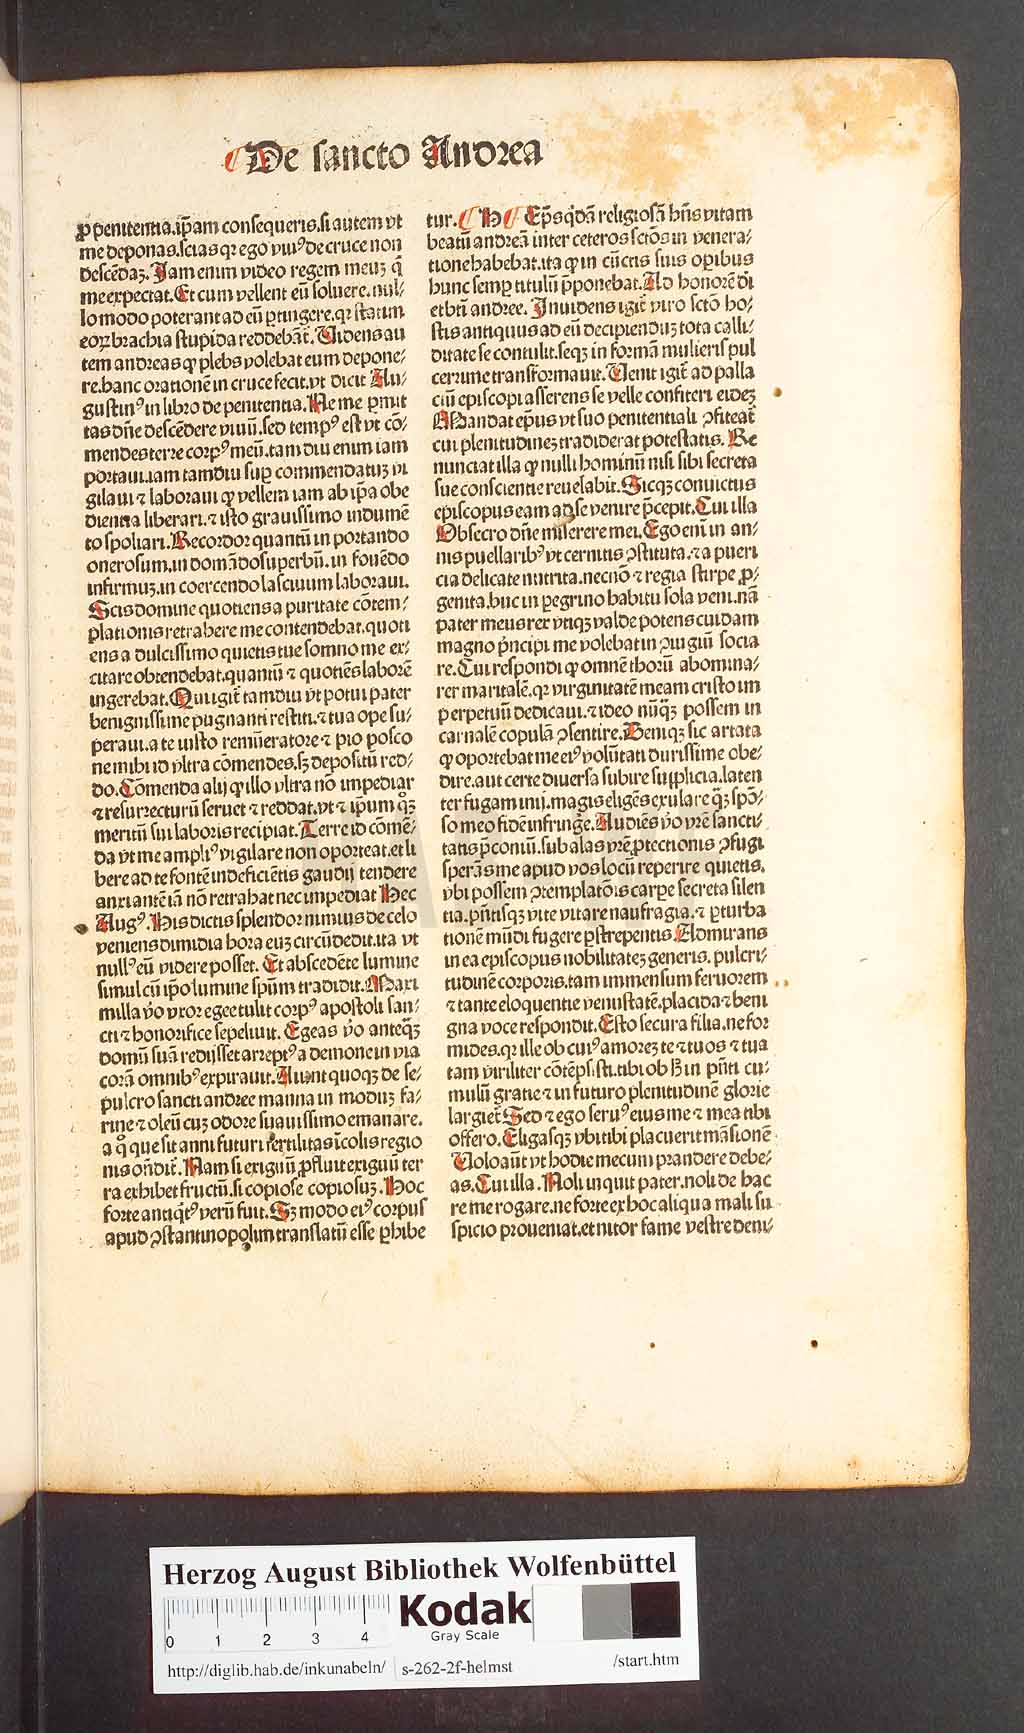 De sancto Andrea
ꝓ penitentia.ip̄am consequeris.si autem vt
me deponas.scias qꝛ ego viuꝰ de cruce non
descēdaꝫ. Jam enim video regem meuꝫ q̄
me expectat. Et cum vellent eū soluere.nul⸗
lo modo poterant ad eū ꝑtingere.qꝛ statim
eoꝝ brachia stupida reddebāt̄. Videns au
tem andreas ꝙ plebs volebat eum depone⸗
re.hanc orationē in cruce fecit.vt dicit Au⸗
gustinꝰ in libro de penitentia. Ne me ꝑmit
tas dn̄e descēdere viuū.sed tempꝰ est vt cō⸗
mendes terre corpꝰ meū.tam diu enim iam
portaui.iam tamdiu suꝑ commendatuꝫ vi
gilaui ⁊ laboraui ꝙ vellem iam ab ip̄a obe
dientia liberari.⁊ isto grauissimo indumē
to spoliari. Recordor quantū in portando
onerosum.in domādo superbū.in fouēdo
infirmuꝫ.in coercendo lasciuum laboraui.
Scis domine quotiens a puritate cōtem⸗
plationis retrahere me contendebat.quoti
ens a dulcissimo quietis tue somno me ex⸗
citare obtendebat.quantū ⁊ quotiēs laborē
ingerebat. Qui igit̄ tamdiu vt potui pater
benignissime pugnanti restiti.⁊ tua ope su⸗
peraui.a te iusto remūeratore ⁊ pio posco
ne mihi id vltra cōmendes.sꝫ depositū red⸗
do. Cōmenda alij ꝙ illo vltra nō impediar
⁊ resurrecturū seruet ⁊ reddat.vt ⁊ ip̄um qꝫ
meritū sui laboris recipiat. Terre id cōmē⸗
da vt me ampliꝰ vigilare non oporteat.et li
bere ad te fontē indeficientis gaudij tendere
anxiantē iā nō retrahat nec impediat Hec
Augꝰ. His dictis splendor nimius de celo
veniens dimidia hora euꝫ circūdedit.ita vt
nullꝰ eū videre posset. Et abscedēte lumine
simul cū ip̄o lumine sp̄um tradidit. Maxi
milla v̄o vxor egee tulit corpꝰ apostoli san⸗
cti ⁊ honorifice sepeliuit. Egeas v̄o anteqꝫ
domū suā redijsset arreptꝰ a demone in via
corā omnibꝰ expirauit. Aiunt quoqꝫ de se⸗
pulcro sancti andree manna in moduꝫ fa⸗
rine ⁊ oleū cuꝫ odore suauissimo emanare.
a qͦ que sit anni futuri fertilitas icolis regio
nis on̄dit̄. Nam si exiguū ꝓfluit exiguū ter
ra exhibet fructū.si copiose copiosuꝫ. Hoc
forte antiqͥtꝰ verū fuit. Sꝫ modo eiꝰ corpus
apud ꝯstantinopolim translatū esse ꝑhibe
tur. H Ep̄s qͥdā religiosā hn̄s vitam
beatū andreā inter ceteros sctōs in venera⸗
tione habebat.ita ꝙ in cūctis suis operibus
hunc semꝑ titulū p̄ponebat. Ad honorē di
et bti andree. Inuidens igit̄ viro sctō ho⸗
stis antiquus ad eū decipienduꝫ tota calli⸗
ditate se contulit.seqꝫ in formā mulieris pul
cerrime transformauit. Venit igit̄ ad palla
ciū episcopi asserens se velle confiteri eideꝫ
Mandat ep̄us vt suo penitentiali ꝯfiteat̄
cui plenitudineꝫ tradiderat potestatis. Re
nunciat illa ꝙ nulli hominū nisi sibi secreta
sue conscientie reuelabit. Sicqꝫ conuictus
episcopus eam ad se venire p̄cepit. Cui illa
Obsecro dn̄e miserere mei. Ego eni in an⸗
nis puellaribꝰ vt cernitis ꝯstituta.⁊ a pueri
cia delicate nutrita.necnō ⁊ regia stirpe ꝓ⸗
genita.huc in ꝑegrino habitu sola veni.nā
pater meus rex vtiqꝫ valde potens cuidam
magno p̄ncipi me volebat in ꝯiugiū socia
re. Cui respondi ꝙ omnē thorū abomina⸗
rer maritalē.qꝛ virginitatē meam cristo im
perpetuū dedicaui.⁊ ideo nūqꝫ possem in
carnalē copulā ꝯsentire. Deniqꝫ sic artata
ꝙ oportebat me eiꝰ volūtati durissime obe⸗
dire.aut certe diuersa subire supplicia.laten
ter fugam inij.magis eligēs exulare qꝫ spō⸗
so meo fidē infringe. Audiēs v̄o vr̄e sancti⸗
tatis p̄coniū.sub alas vr̄e ꝓtectionis ꝯfugi
sperās me apud vos locū reperire quietis.
vbi possem ꝯtemplatōis carpe secreta silen
tia.pn̄tisqꝫ vite vitare naufragia.⁊ ꝑturba
tionē mūdi fugere ꝑstrepentis. Admirans
in ea episcopus nobilitateꝫ generis. pulcri⸗
tudinē corporis.tam immensum feruorem
⁊ tante eloquentie venustatē.placida ⁊ beni
gna voce respondit. Esto secura filia.ne for
mides.qꝛ ille ob cuiꝰ amoreꝫ te ⁊ tuos ⁊ tua
tam viriliter cōtēpsisti.tibi ob ꝫ in pn̄ti cu⸗
mulū gratie ⁊ in futuro plenitudinē glorie
largiet̄. Sed ⁊ ego seruꝰ eius me ⁊ mea tibi
offero. Eligasqꝫ vbi tibi placuerit māsionē
Volo aūt vt hodie mecum prandere debe⸗
as. Cui illa. Noli inquit pater.noli de hac
re me rogare.ne forte ex hoc aliqua mali su
spicio proueniat.et nitor fame vestre deni⸗
Herzog August Bibliothek Wolfenbüttel
0 1 2 3 4
Kodak
Gray Scale
http://diglib.hab.de/inkunabeln/ s-262-2f-helmst /start.htm